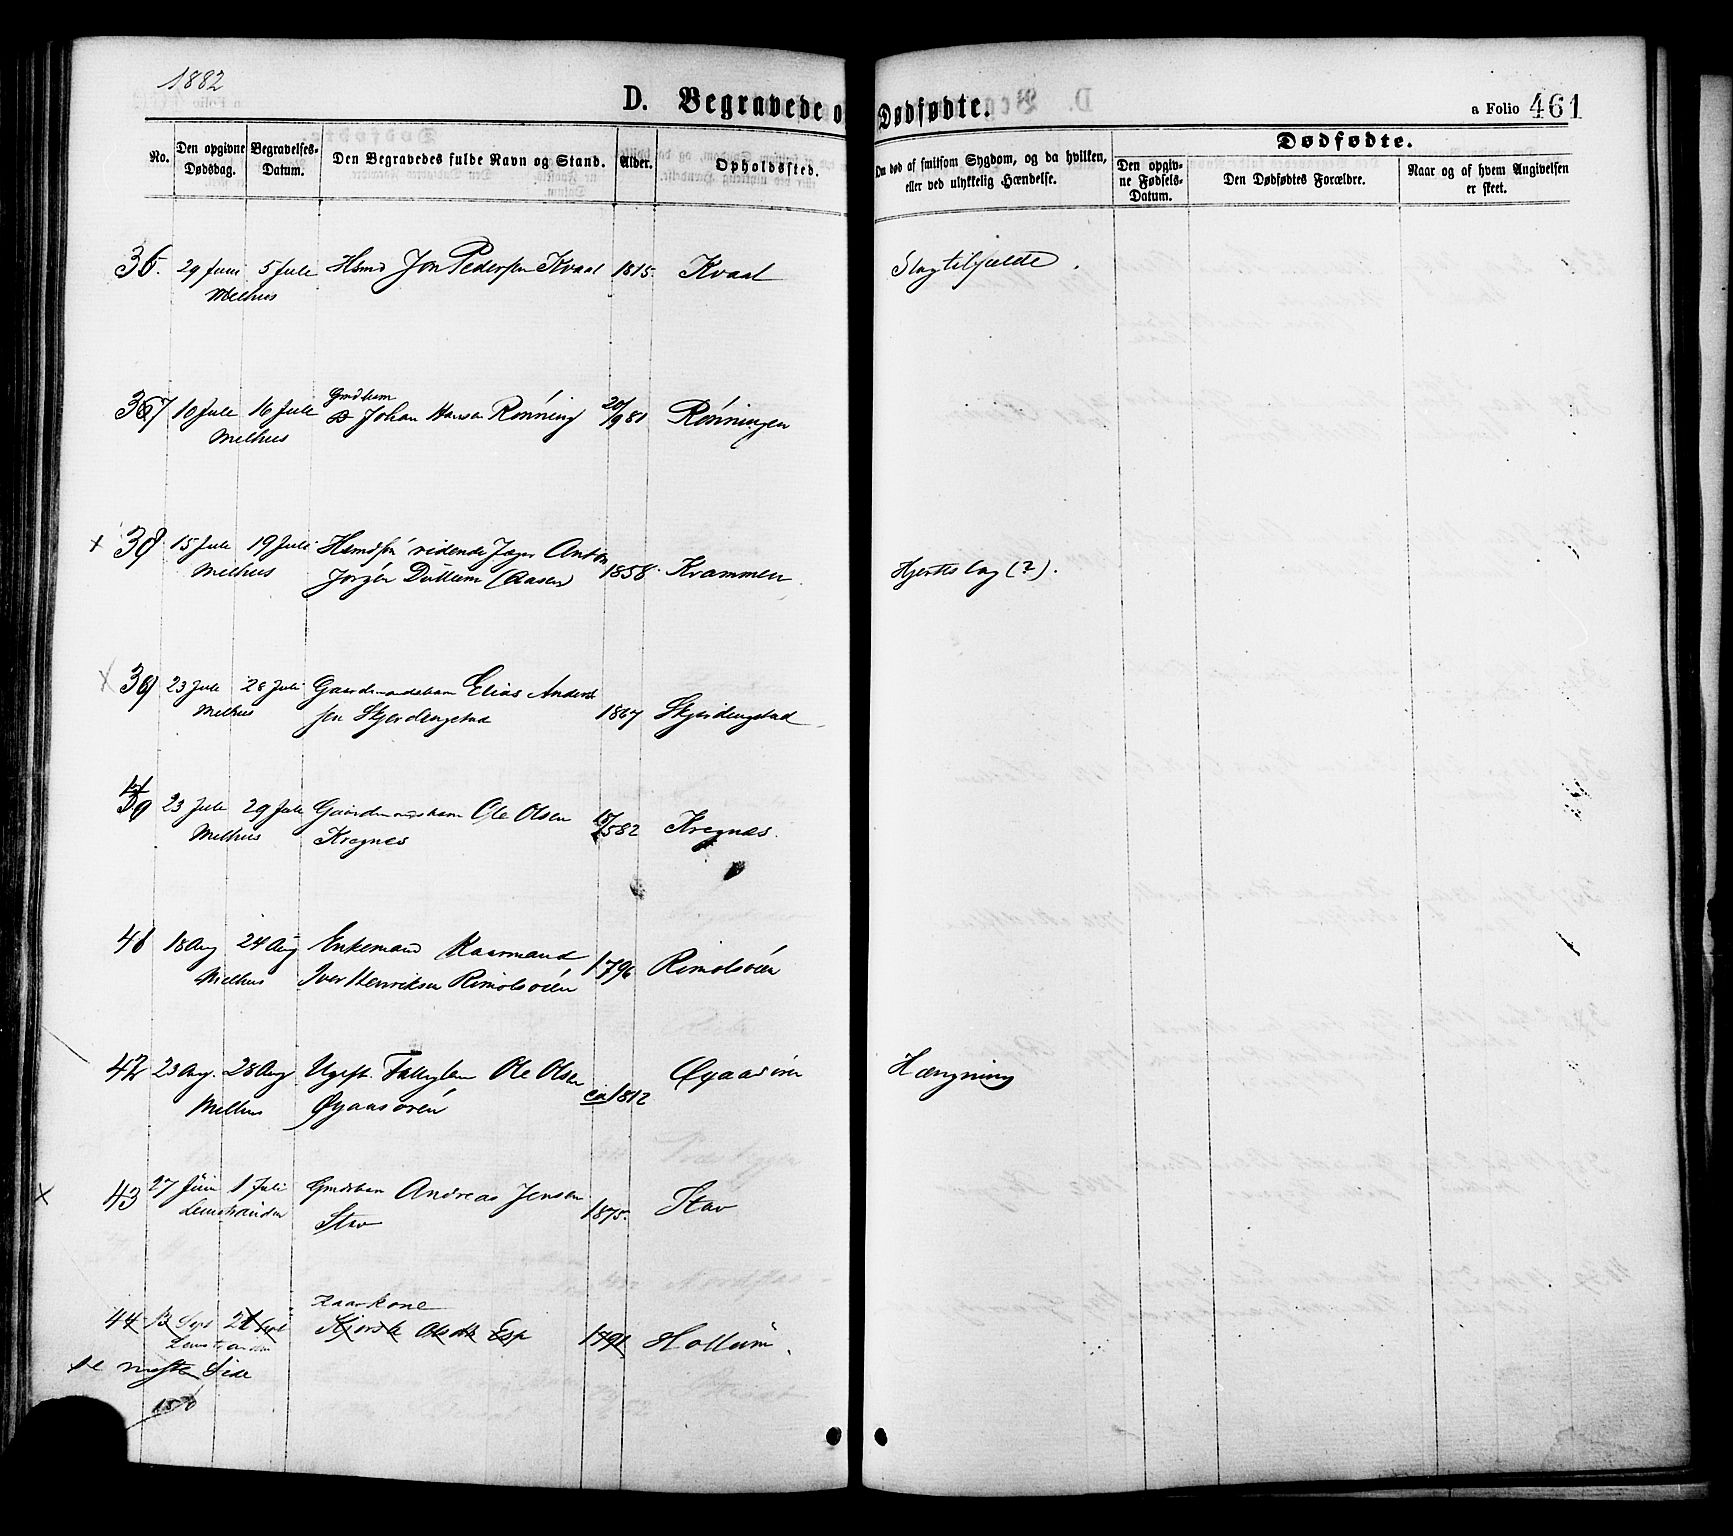 1882
D. Begravede o
Dødfødte.
a Folio 461
No.
Den opgivne Dødsdag.
Begravelses-Datum.
Den Begravedes fulde Navn og Stand.
Alder.
Opholdssted.
Om død af smitsom Sygdom, og da hvilken, eller ved ulykkelig Hændelse.
Dødfødte.
Den opgivne Fødsels-Datum.
Den Dødfødtes Forældre.
Naar og af hvem Angivelsen er skeet.
36. 29 Juni 5 Juli Hsmd Jon Pedersen Kvaal 1815. Kvaal Slagtilfælde.
Melhus
Gmdbarn
37 10 Juli 16 Juli Johan Hansen Rønning 20/9 81 Rønningen
Melhus
x 38 15 Juli 19 Juli Hsmdsøn ridende Jæger Anton
Melhus Jørgen Dullum (Aasen) 1858. Krammen. Hjerteslag (?).
x 39 23 Juli 28 Juli Gaardmandsbarn Elias Anders
Melhus sen Skjerdingstad 1867 Skjerdingstad
40 23 Juli 29 Juli Gaardmandsbarn Ole Olsen 82 Kregnes.
Melhus Kregnes
41 18 Aug 24 Aug Enkemand Kaarmand
Melhus Iver Henriksen Rimolsøien 1796 Rimolsøien
42 23 Aug. 28 Aug Ugift Fattiglem Ole Olsen Øyaasøren Hængning
Melhus Øyaasøren ca 1812
x 43 27 Juni 1 Juli Gmdsbarn Andreas Jensen
Leinstranden Stav 1875. Stav
Kaarkone
44 13 Sept 21 Sept 1791 Hollum.
Leinstranden
Se næste Side